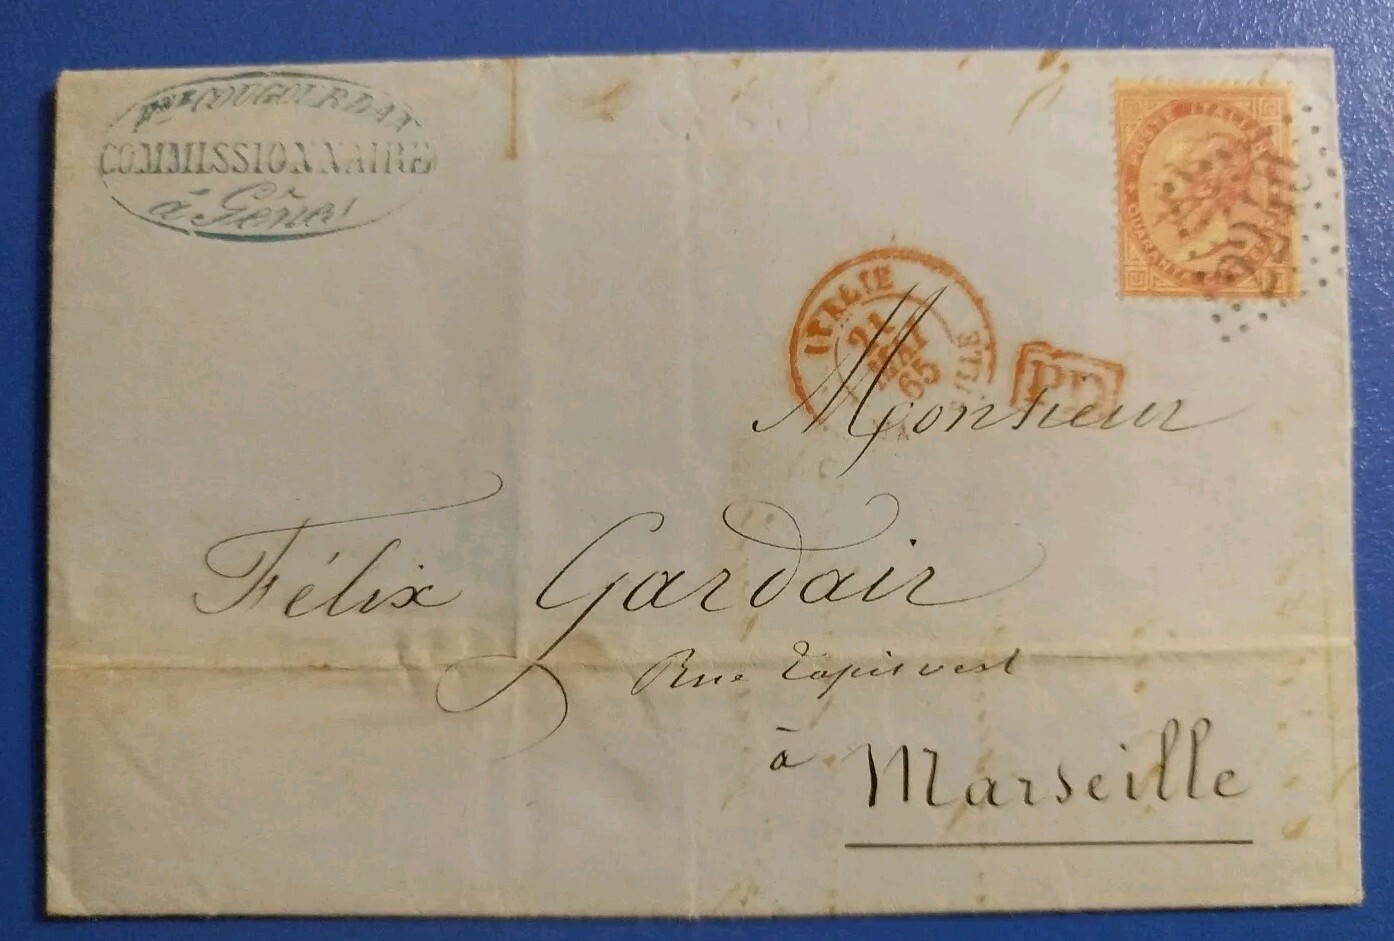 COUGOURDAN
COMMISSIONNAIRE
à Gênes
POSTE ITALIANE
QUARANTA
2240
ITALIE
21
MAI
65
PD
Monsieur
Félix Gardair
Rue Tapis vert
à Marseille